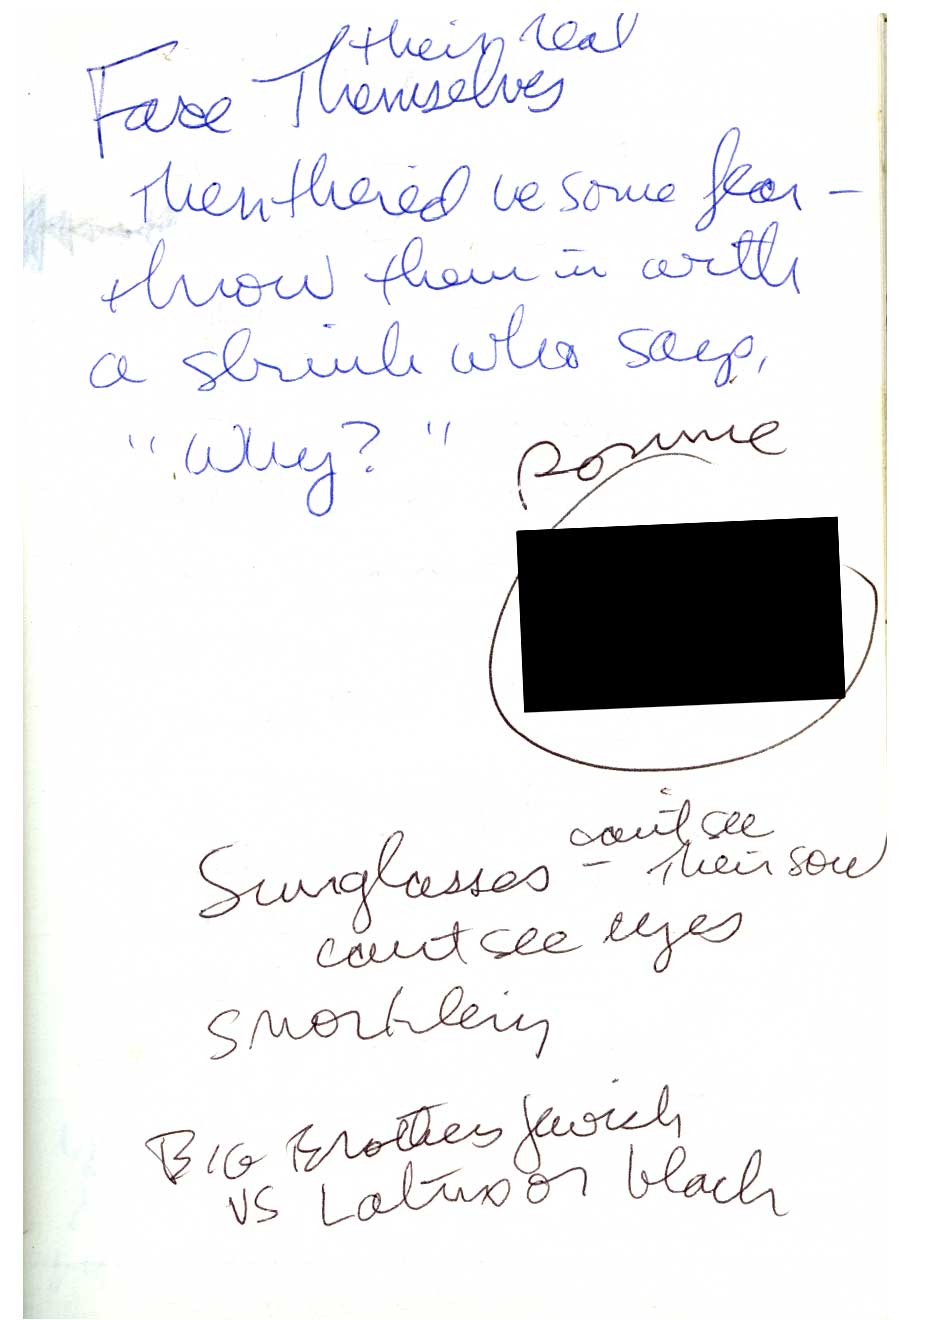 their real
Face Themselves
Then there'd be some fear –
throw them in with
a shrink who says,
"Why?"
Ronnie
can't see
Sunglasses – their soul
can't see eyes
snorkling
Big Brothers Jewish
VS Latinos or black